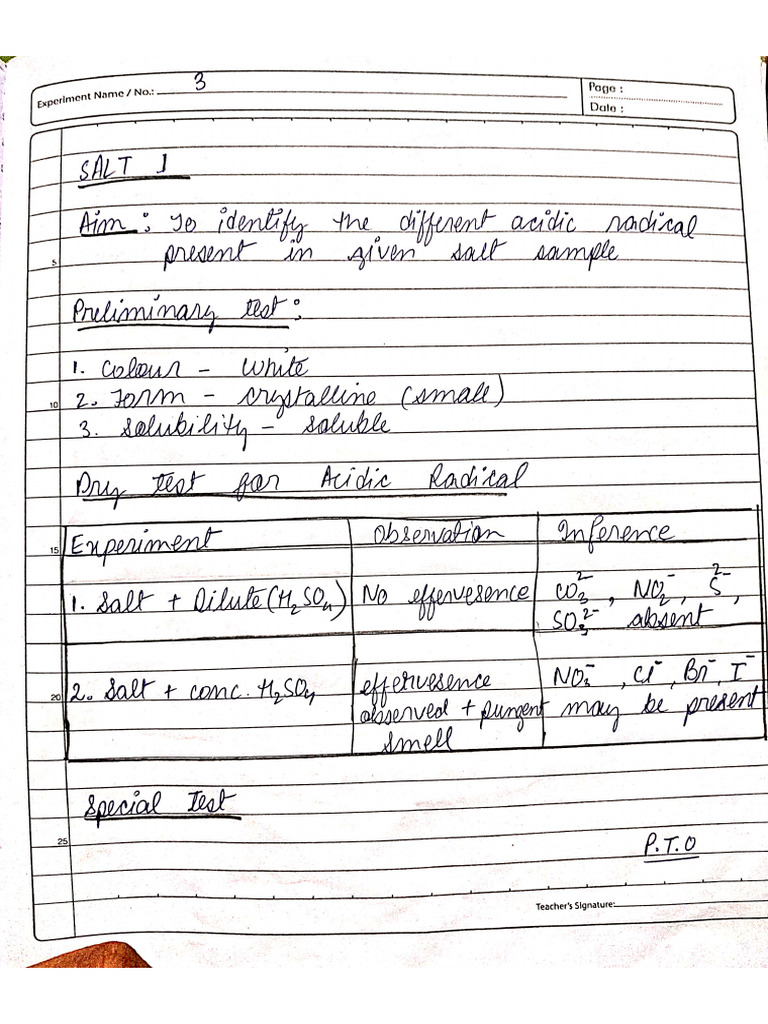 Experiment Name / No.: 3
Page :
Date :
SALT 1
Aim : To identify the different acidic radical
present in given salt sample
5
Preliminary test :
1. Colour - White
10 2. Form - crystalline (small)
3. Solubility - soluble
Dry test for Acidic Radical
15 Experiment Observation Inference
1. Salt + Dilute (H₂SO₄) No effervesence CO₃²⁻, NO₂⁻, S²⁻,
SO₃²⁻ absent
20 2. Salt + conc. H₂SO₄ effervesence NO₃⁻, Cl⁻, Br⁻, I⁻
observed + pungent may be present
smell
Special Test
25 P.T.O
Teacher's Signature: